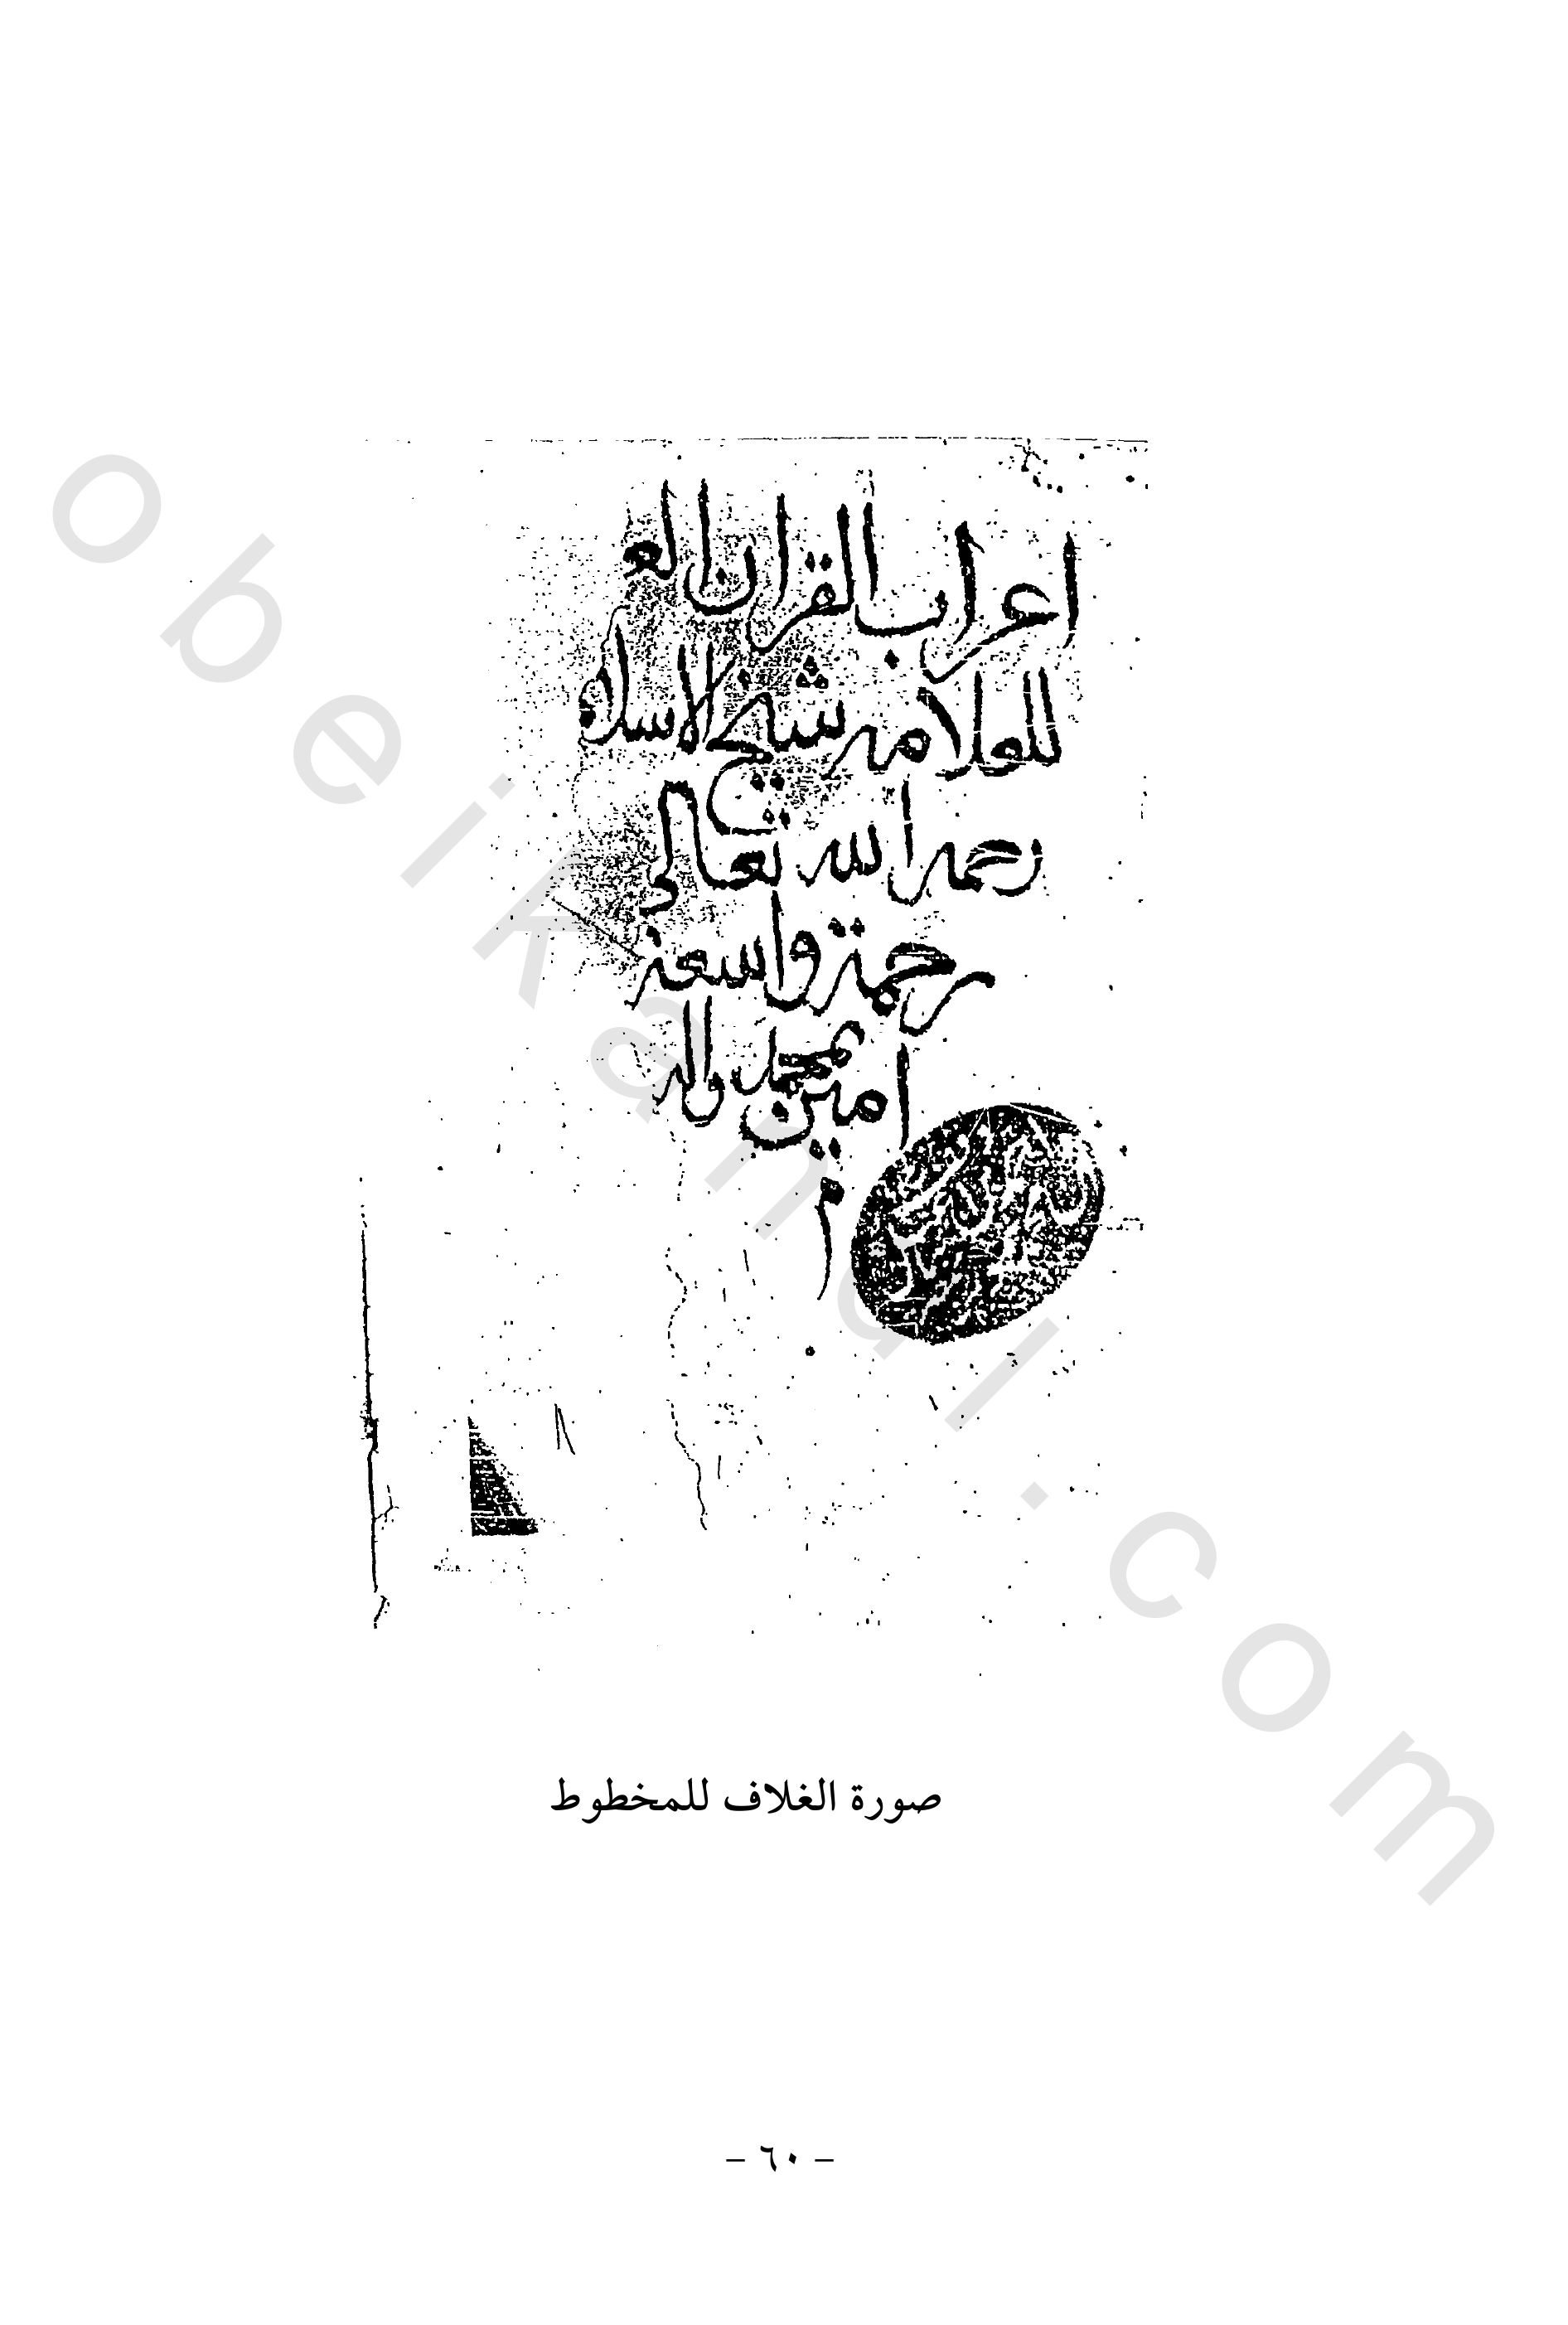 اعراب القران الع
للعلامه شيخ الاسلام
رحمه الله تعالى
رحمة واسعة
امين بمحمد واله
م
صورة الغلاف للمخطوط
– ٦٠ –
obeikandl.com